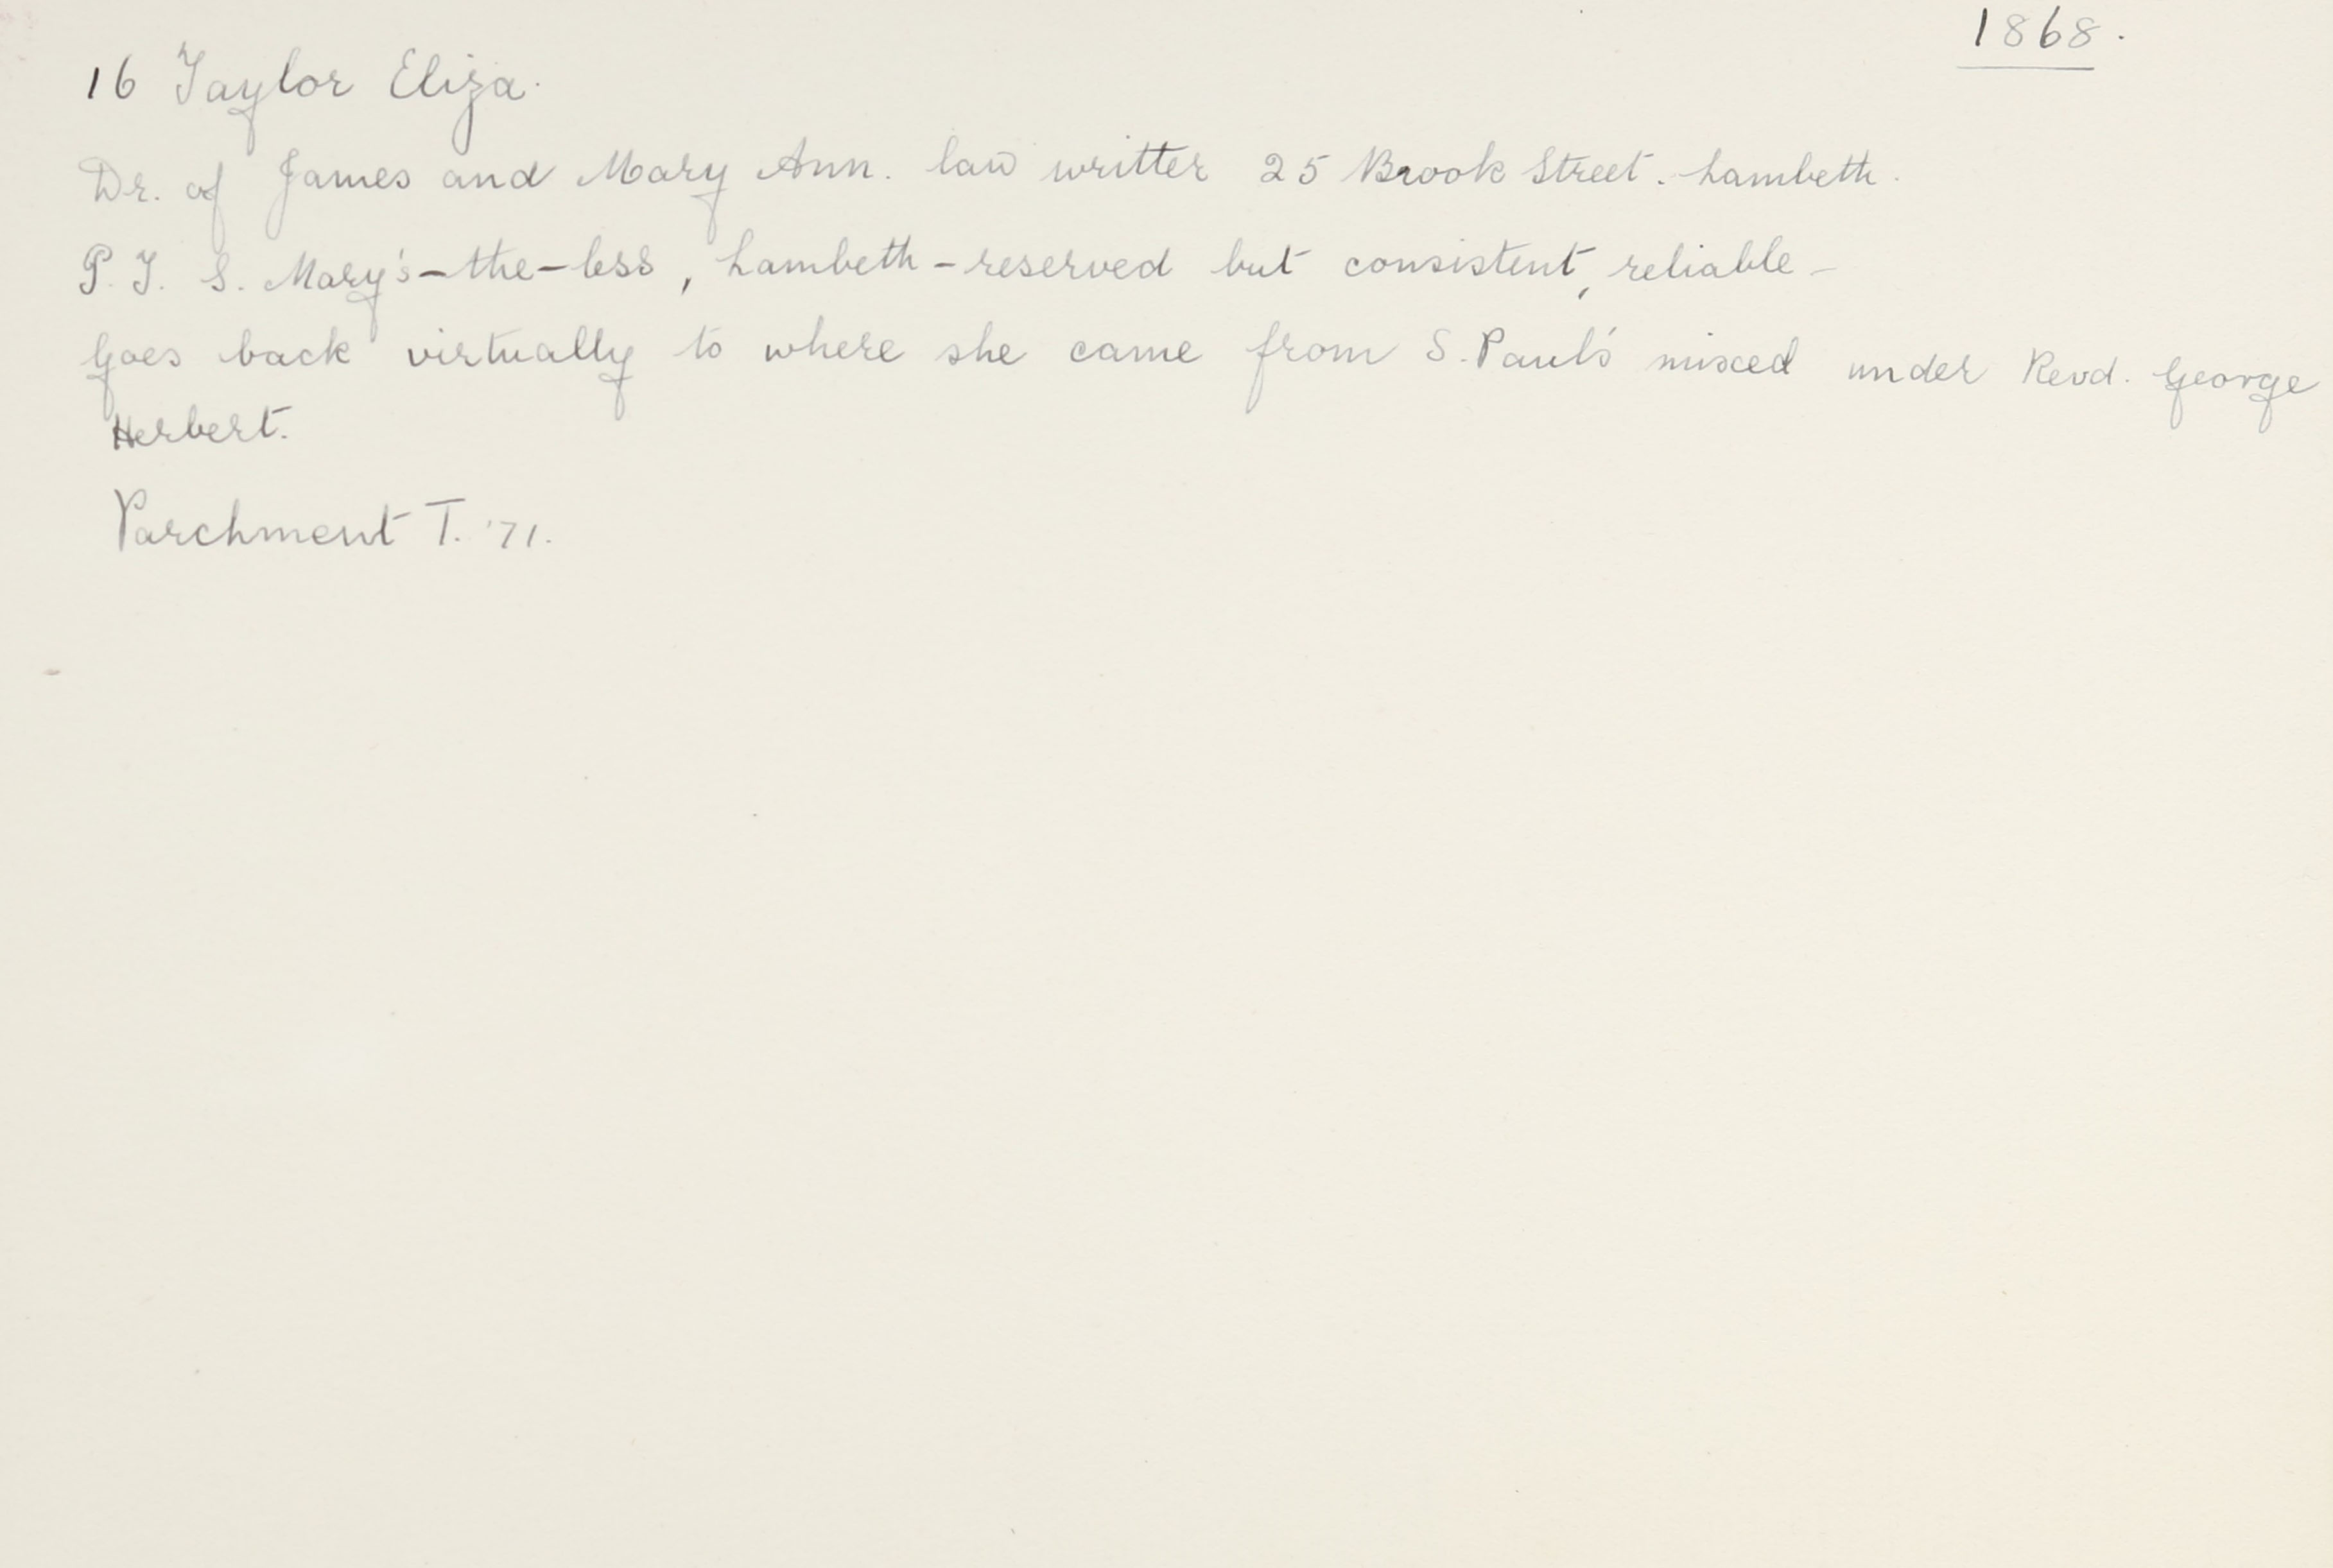 1868.
16 Taylor Eliza.
Dr. of James and Mary Ann. law writter 25 Brook Street. Lambeth.
P. T. S. Mary's-the-less, Lambeth - reserved but consistent, reliable -
Goes back virtually to where she came from S. Paul's mixed under Revd. George
Herbert.
Parchment T. '71.